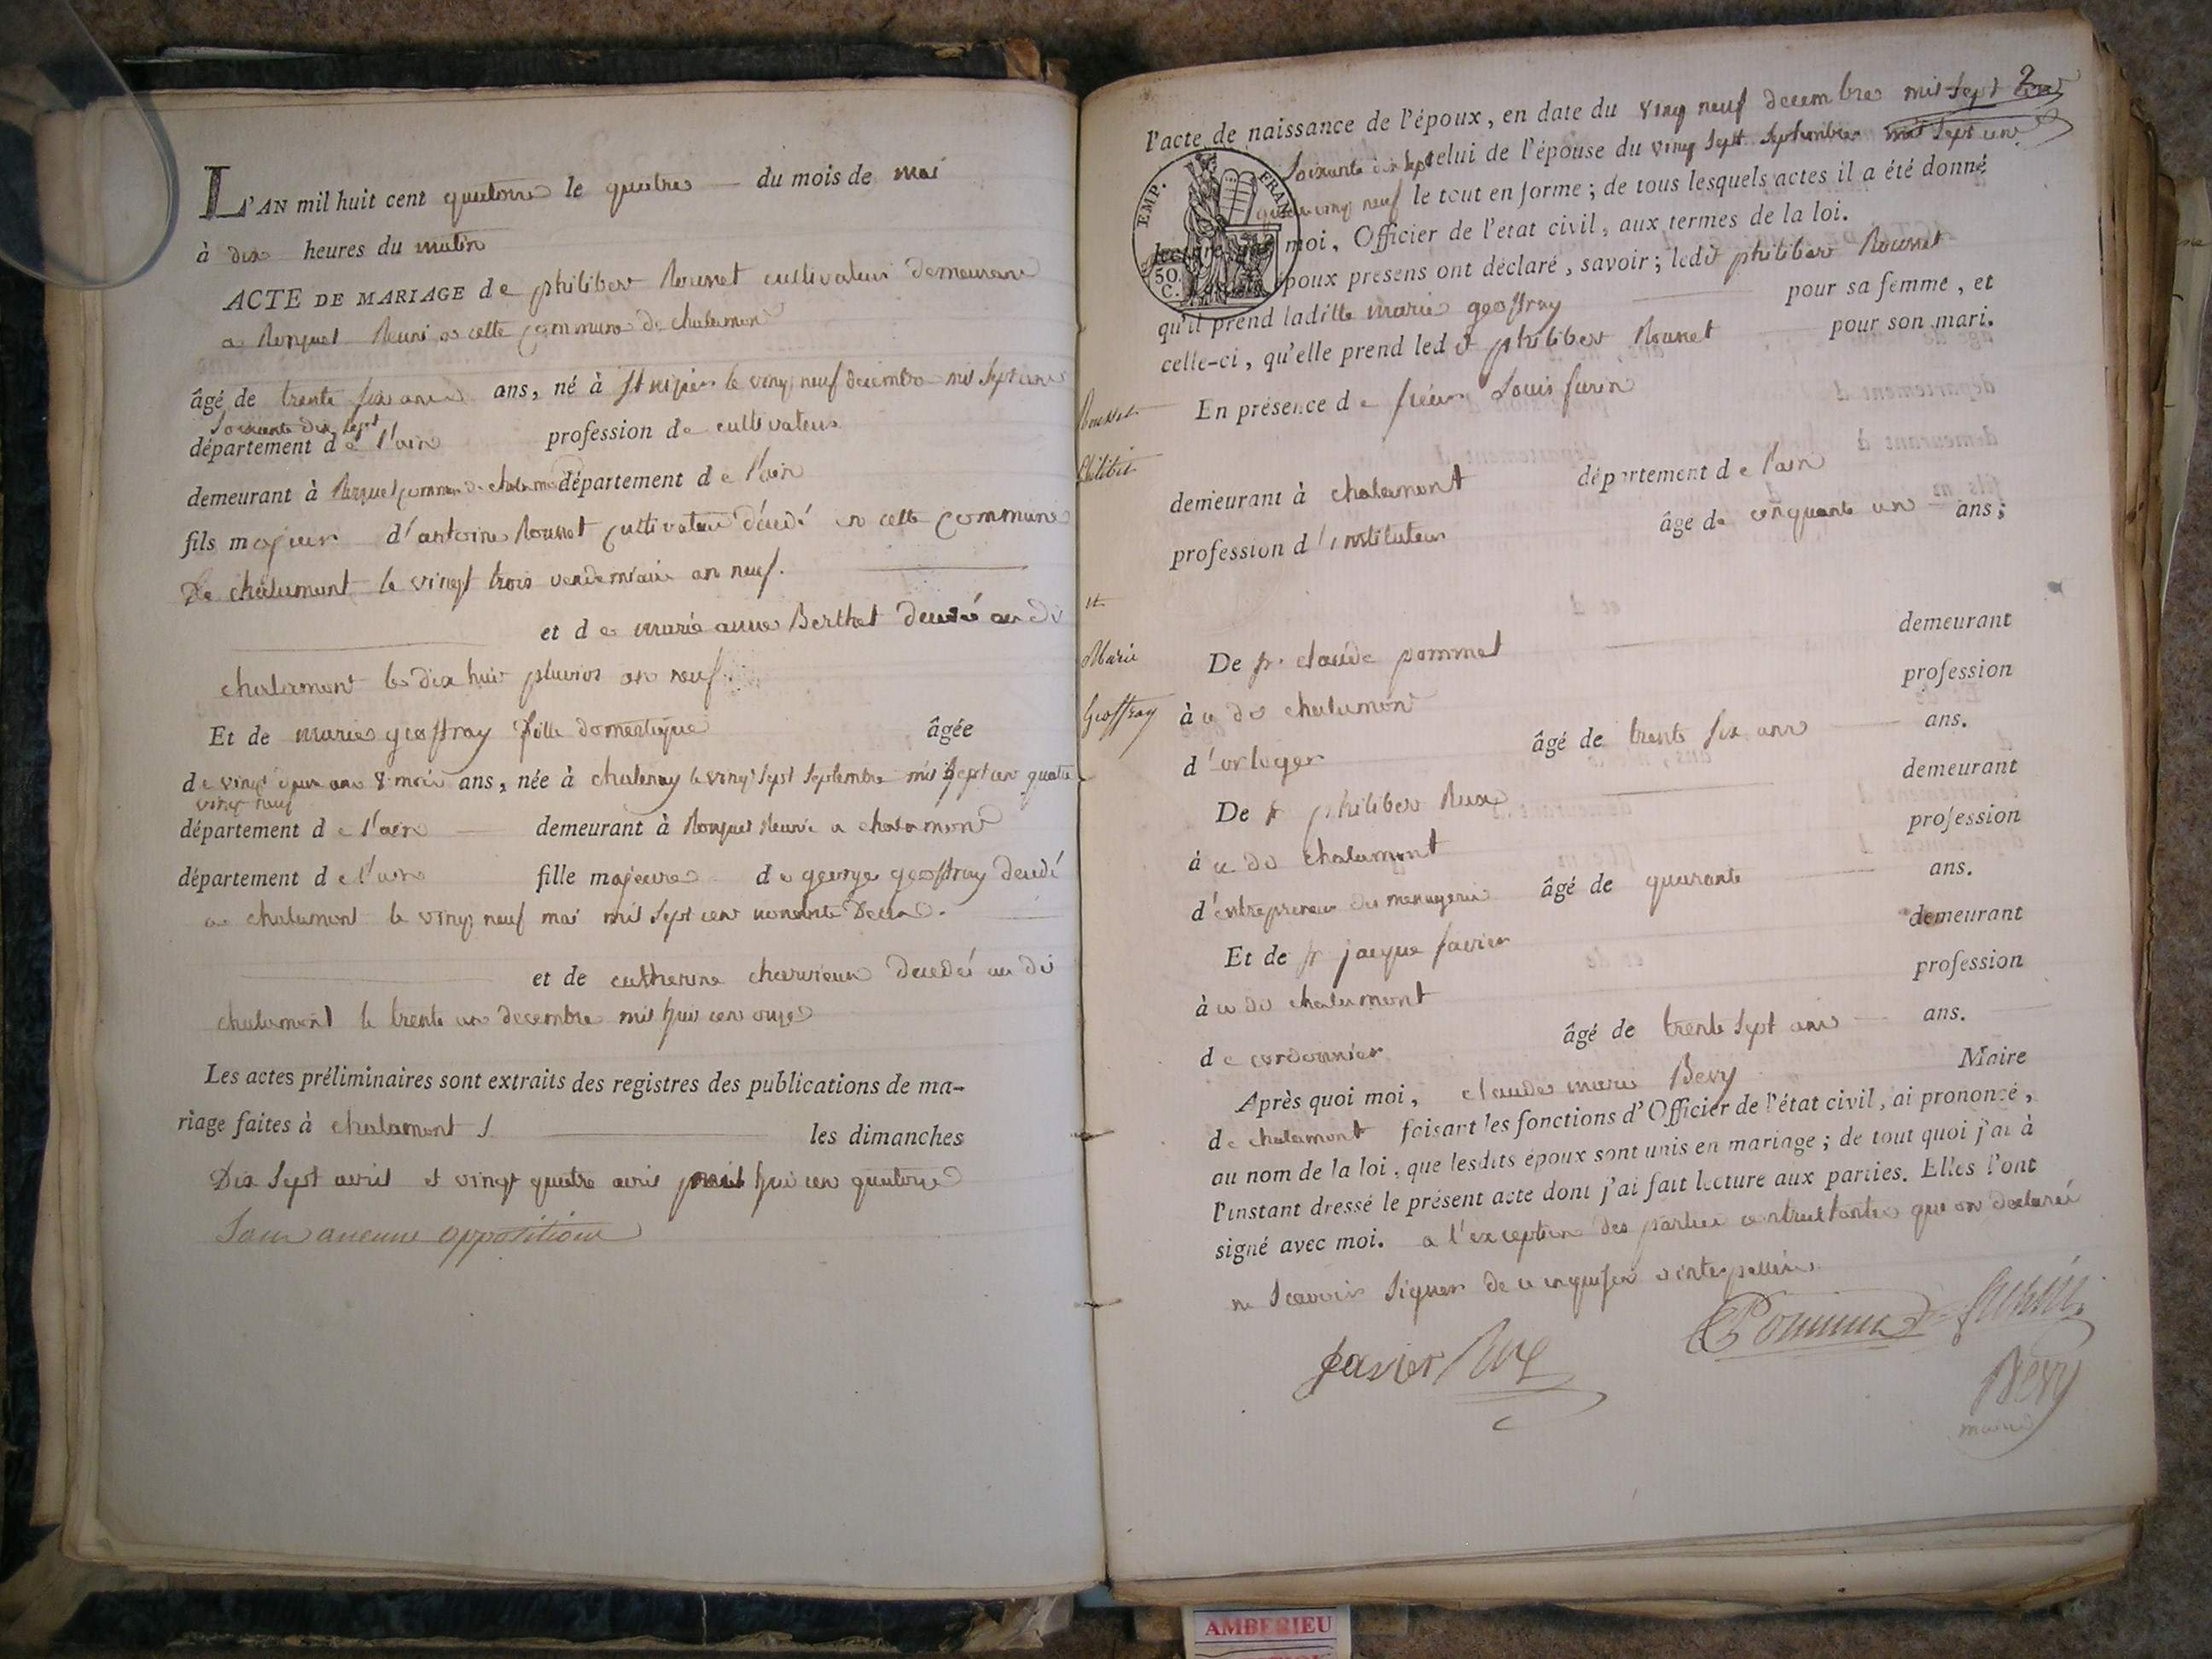 L'AN mil huit cent quatorze le quatre du mois de mai
à dix heures du matin
ACTE DE MARIAGE de philibert Rousset cultivateur demeurant
a Ronzuel Reuni a cette commune de chalamont
âgé de trente six ans ans, né à St nizier le vingt neuf decembre mil sept cent
soixante dix sept
département de l'ain profession de cultivateur
demeurant à Ronzuel commune de chalamont département de l'ain
fils majeur d'antoine Rousset cultivateur décédé en cette commune
De chalamont le vingt trois vendemiaire an neuf.
et de marie anne Berthet decedé au dit
chalamont le dix huit pluvios an neuf.
Et de marie geoffray fille domestique âgée
de vingt quatre ans 8 mois ans, née à chatenay le vingt sept septembre mil sept cent quatre
vingt neuf
département de l'ain demeurant à Ronzuel Reunie a chalamont
département de l'ain fille majeure de george geoffray decedé
a chalamont le vingt neuf mai mil sept cent nonante Deux.
et de catherine charvieux decedée au dit
chalamont le trente un decembre mil huit cent onze
Les actes préliminaires sont extraits des registres des publications de ma-
riage faites à chalamont les dimanches
Dix sept avril et vingt quatre avril mil huit cent quatorze
Sans aucune opposition
2
l'acte de naissance de l'époux, en date du vingt neuf decembre mil sept cent
soixante dix sept celui de l'épouse du vingt sept septembre mil sept cent
quatre vingt neuf le tout en forme ; de tous lesquels actes il a été donné
lecture par moi, Officier de l'état civil, aux termes de la loi.
époux présens ont déclaré, savoir ; ledit philibert Rousset
EMP. FRAN
50 C.
qu'il prend ladite marie geoffray pour sa femme, et
celle-ci, qu'elle prend ledit philibert Rousset pour son mari.
Rousset
Philibert
et
Marie
Geoffray
En présence de sieur Louis furin
demeurant à chalamont département de l'ain
profession d'instituteur âgé de cinquante un ans ;
De sr claude pommet demeurant
à ce dit chalamont profession
d'orloger âgé de trente six ans ans.
De sr philibert Rux demeurant
à ce dit chalamont profession
d'entrepreneur des messageries âgé de quarante ans.
Et de sr jacque favier demeurant
à ce dit chalamont profession
de cordonnier âgé de trente sept ans ans.
Après quoi moi, claude marie Bevy Maire
de chalamont faisant les fonctions d'Officier de l'état civil, ai prononcé,
au nom de la loi, que lesdits époux sont unis en mariage ; de tout quoi j'ai à
l'instant dressé le présent acte dont j'ai fait lecture aux parties. Elles l'ont
signé avec moi. a l'exception des parties contractantes qui on declaré
ne scavoir signer de ce enquises
favier
Bevy
maire
AMBERIEU